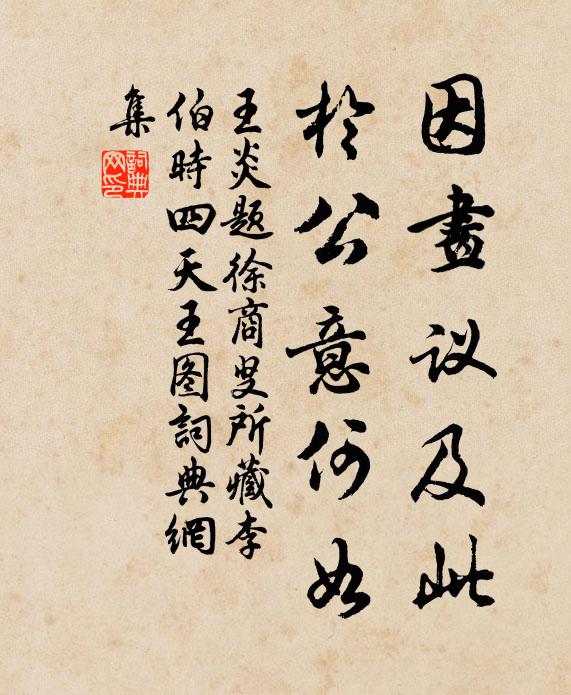 因畫议及此
於公意何如
王炎题徐商叟所藏李
伯時四天王图詞典網
集
詞典
网印